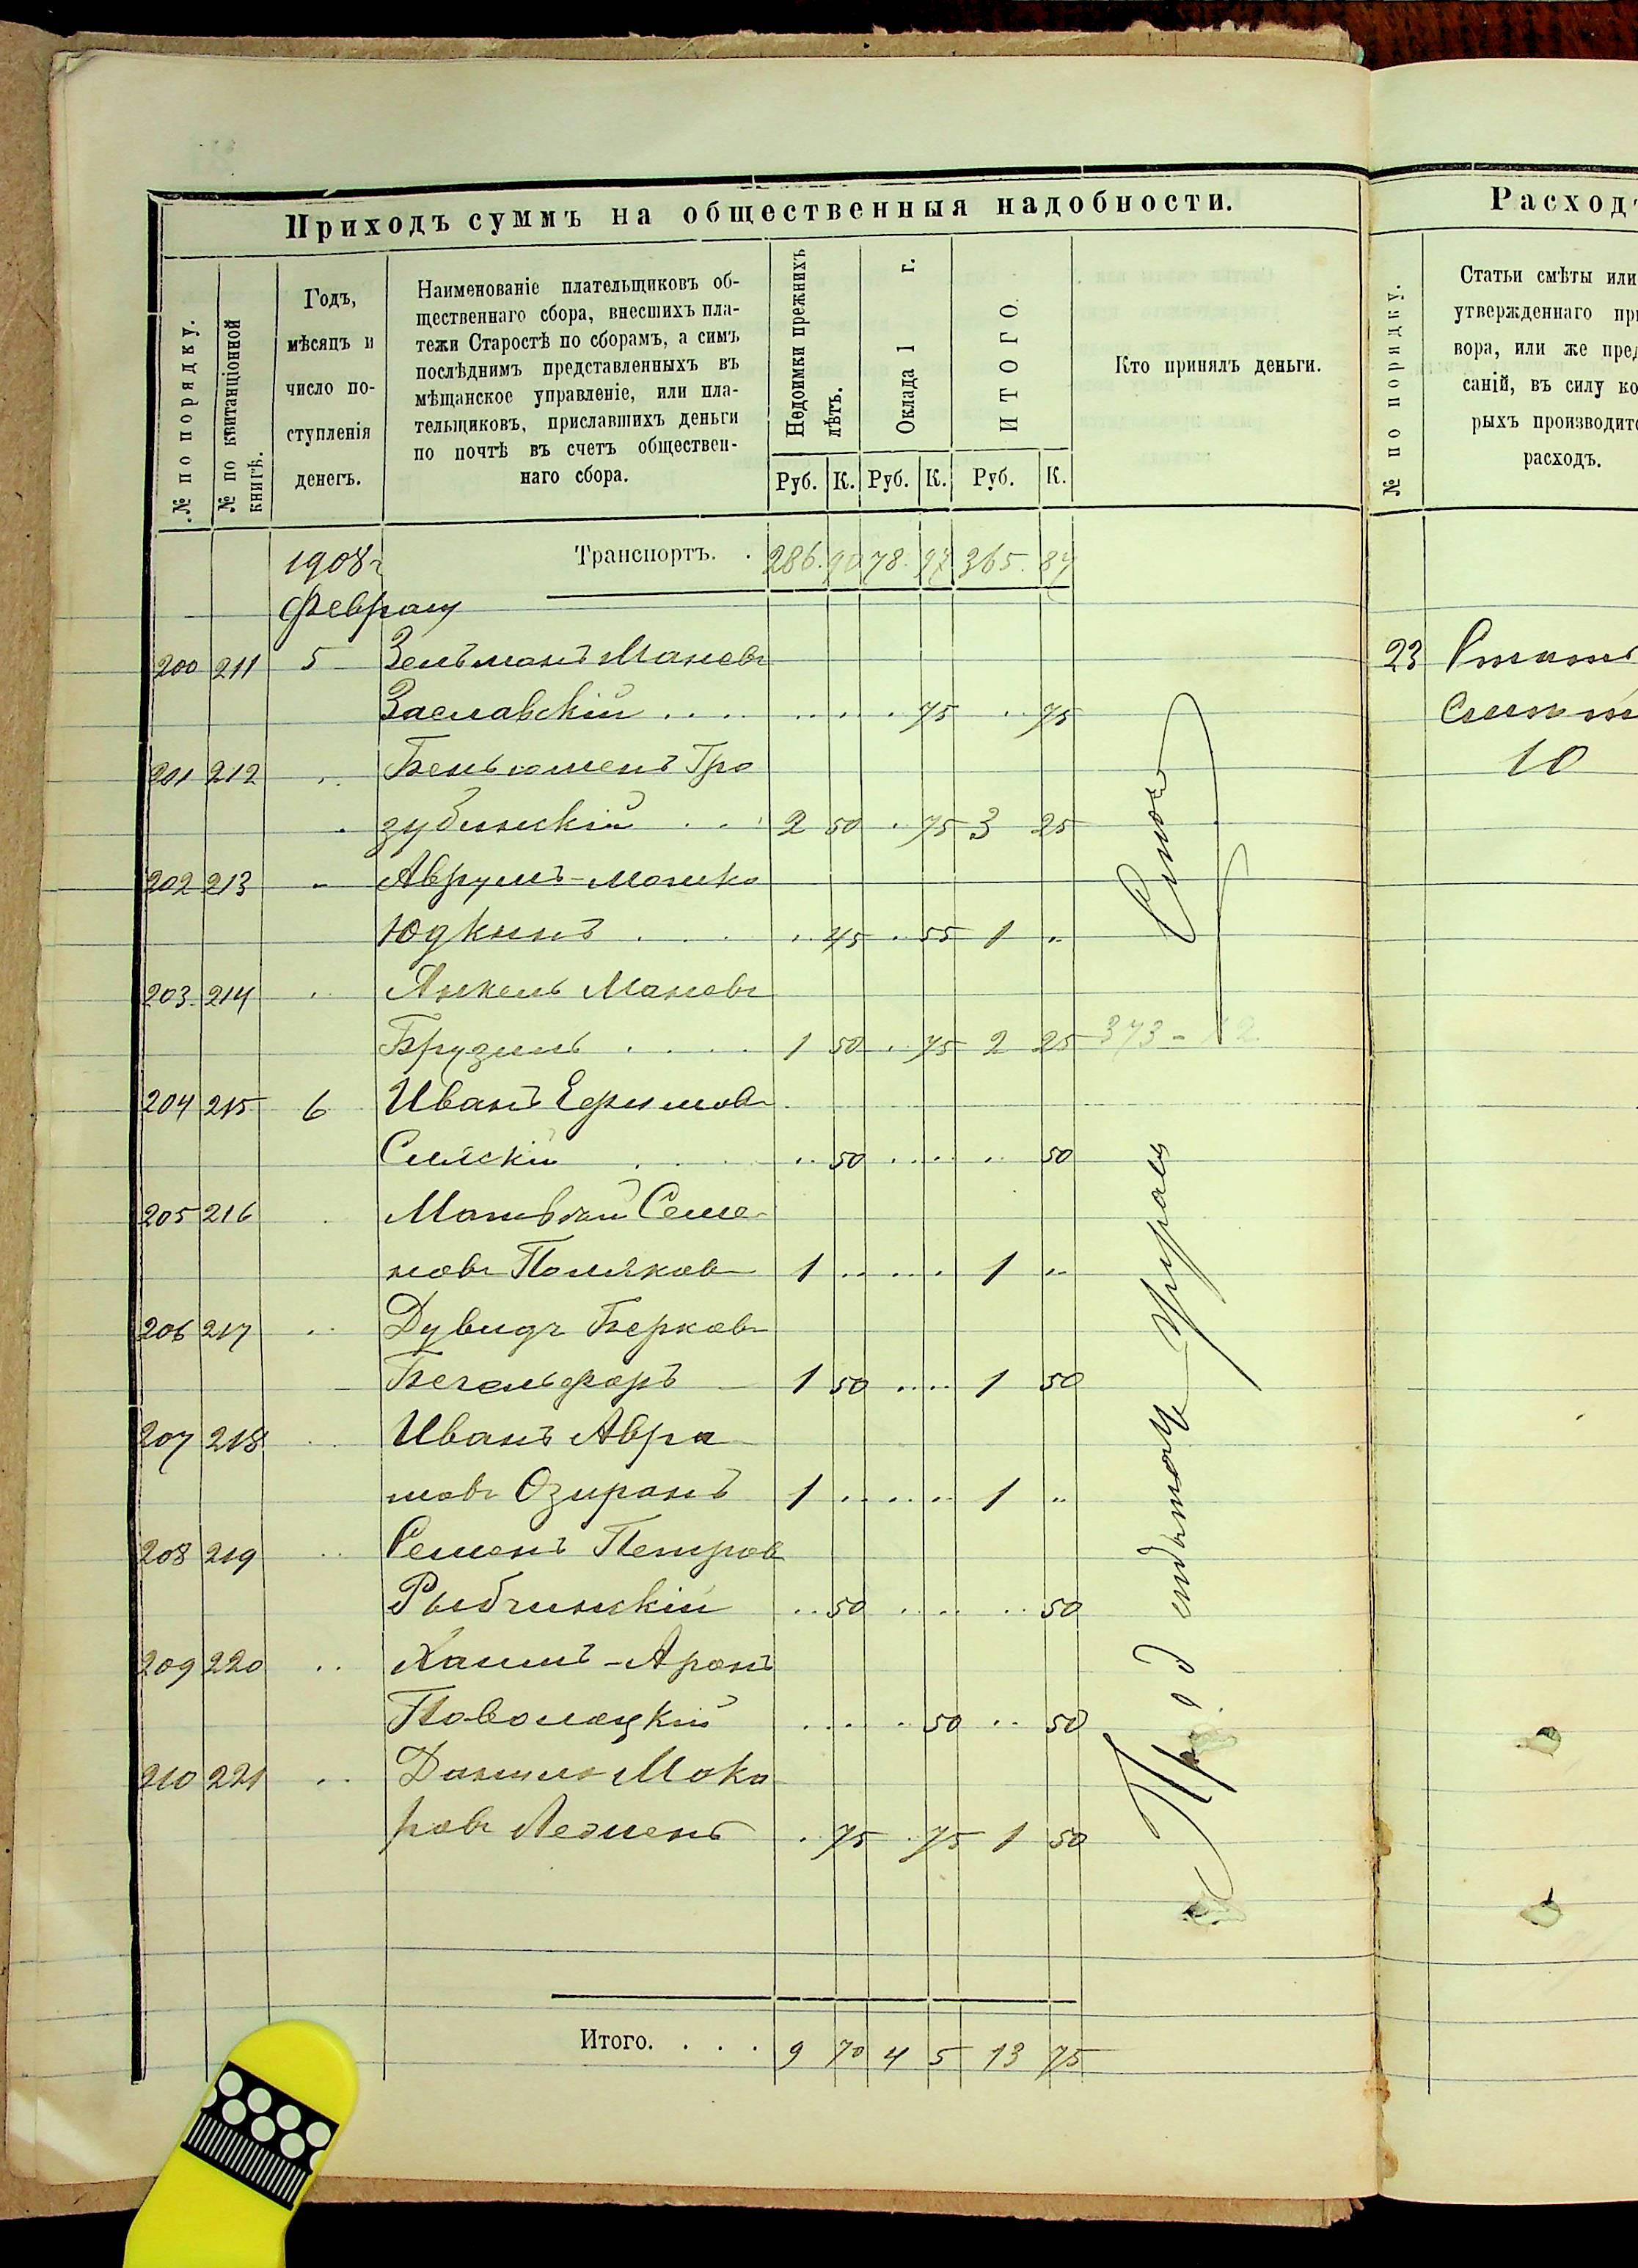 Приходъ суммъ на общественныя надобности.
№ по порядку.
№ по квитанціонной книгѣ.
Годъ, мѣсяцъ и число поступленія денегъ.
Наименованіе плательщиковъ об-
щественнаго сбора, внесшихъ пла-
тежи Старостѣ по сборамъ, а симъ
послѣднимъ представленныхъ въ
мѣщанское управленіе, или пла-
тельщиковъ, приславшихъ деньги
по почтѣ въ счетъ обществен-
наго сбора.
Недоимки прежнихъ лѣтъ.
Оклада 1 г.
ИТОГО.
Кто принялъ деньги.
Руб. К. Руб. К. Руб. К.
1908 г Транспортъ. . 286. 90 78. 97 365. 87
Февраля
200 211 5 Зельманъ Манов
Заславскій .... 75 75
201 212 Беньюменъ Гро
зубинскій 2 50 75 3 25
202 213 Аврумъ-Мошко
Юдкинъ 45 55 1 „
203 214 Янкель Манов
Брузиль 1 50 75 2 25 373 -
204 215 6 Иванъ Ефимов
50 50
205 216 Матвѣй Семе-
нов Поляков 1 1 „
206 217 Дувидъ Берков
1 50 1 50
207 218 Иванъ Авра
мов Озиранъ 1 1 „
208 219 Семенъ Петров
Рыбчинскій 50 50
209 220 Хаимъ-Аронъ
Поволоцкій 50 50
210 221 Данило Мока
ров 75 75 1 50
Итого. . . . 9 70 4 5 13 75
Расходъ
№ по порядку.
Статьи смѣты или
утвержденнаго при
вора, или же пред
саній, въ силу ко
рыхъ производитс
расходъ.
23
10